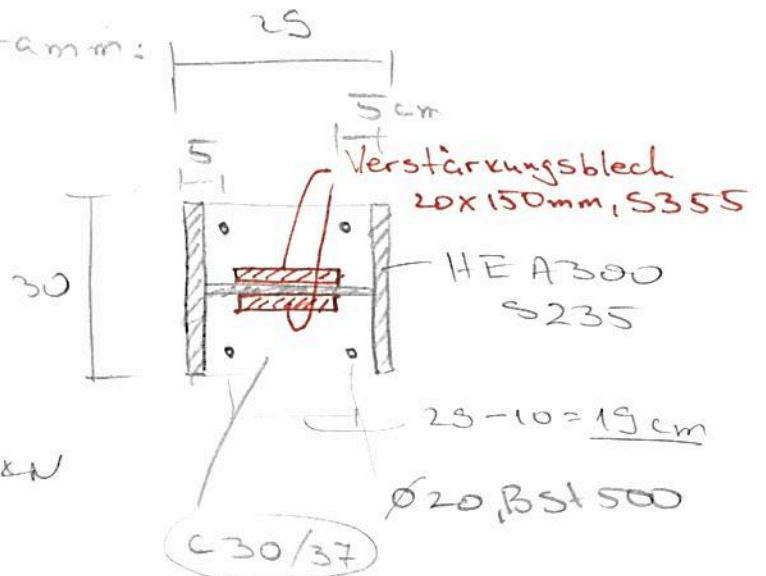 amm:
29
5 cm
5
Verstärkungsblech
20x150mm, S355
HE A300
S235
30
29-10=19 cm
kN
Ø20, BSt 500
C30/37